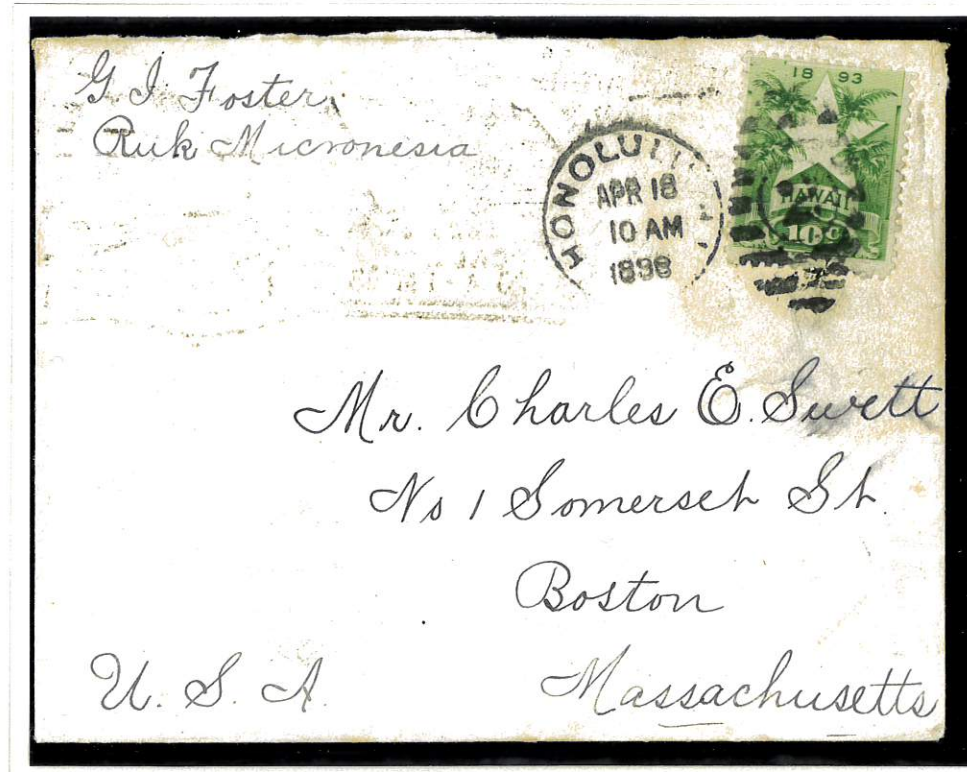 G. I. Foster,
Ruk Micronesia
HONOLULU
APR 18
10 AM
1898
1893
HAWAII
10c
Mr. Charles E. Swett
No 1 Somerset St.
Boston
Massachusetts
U. S. A.